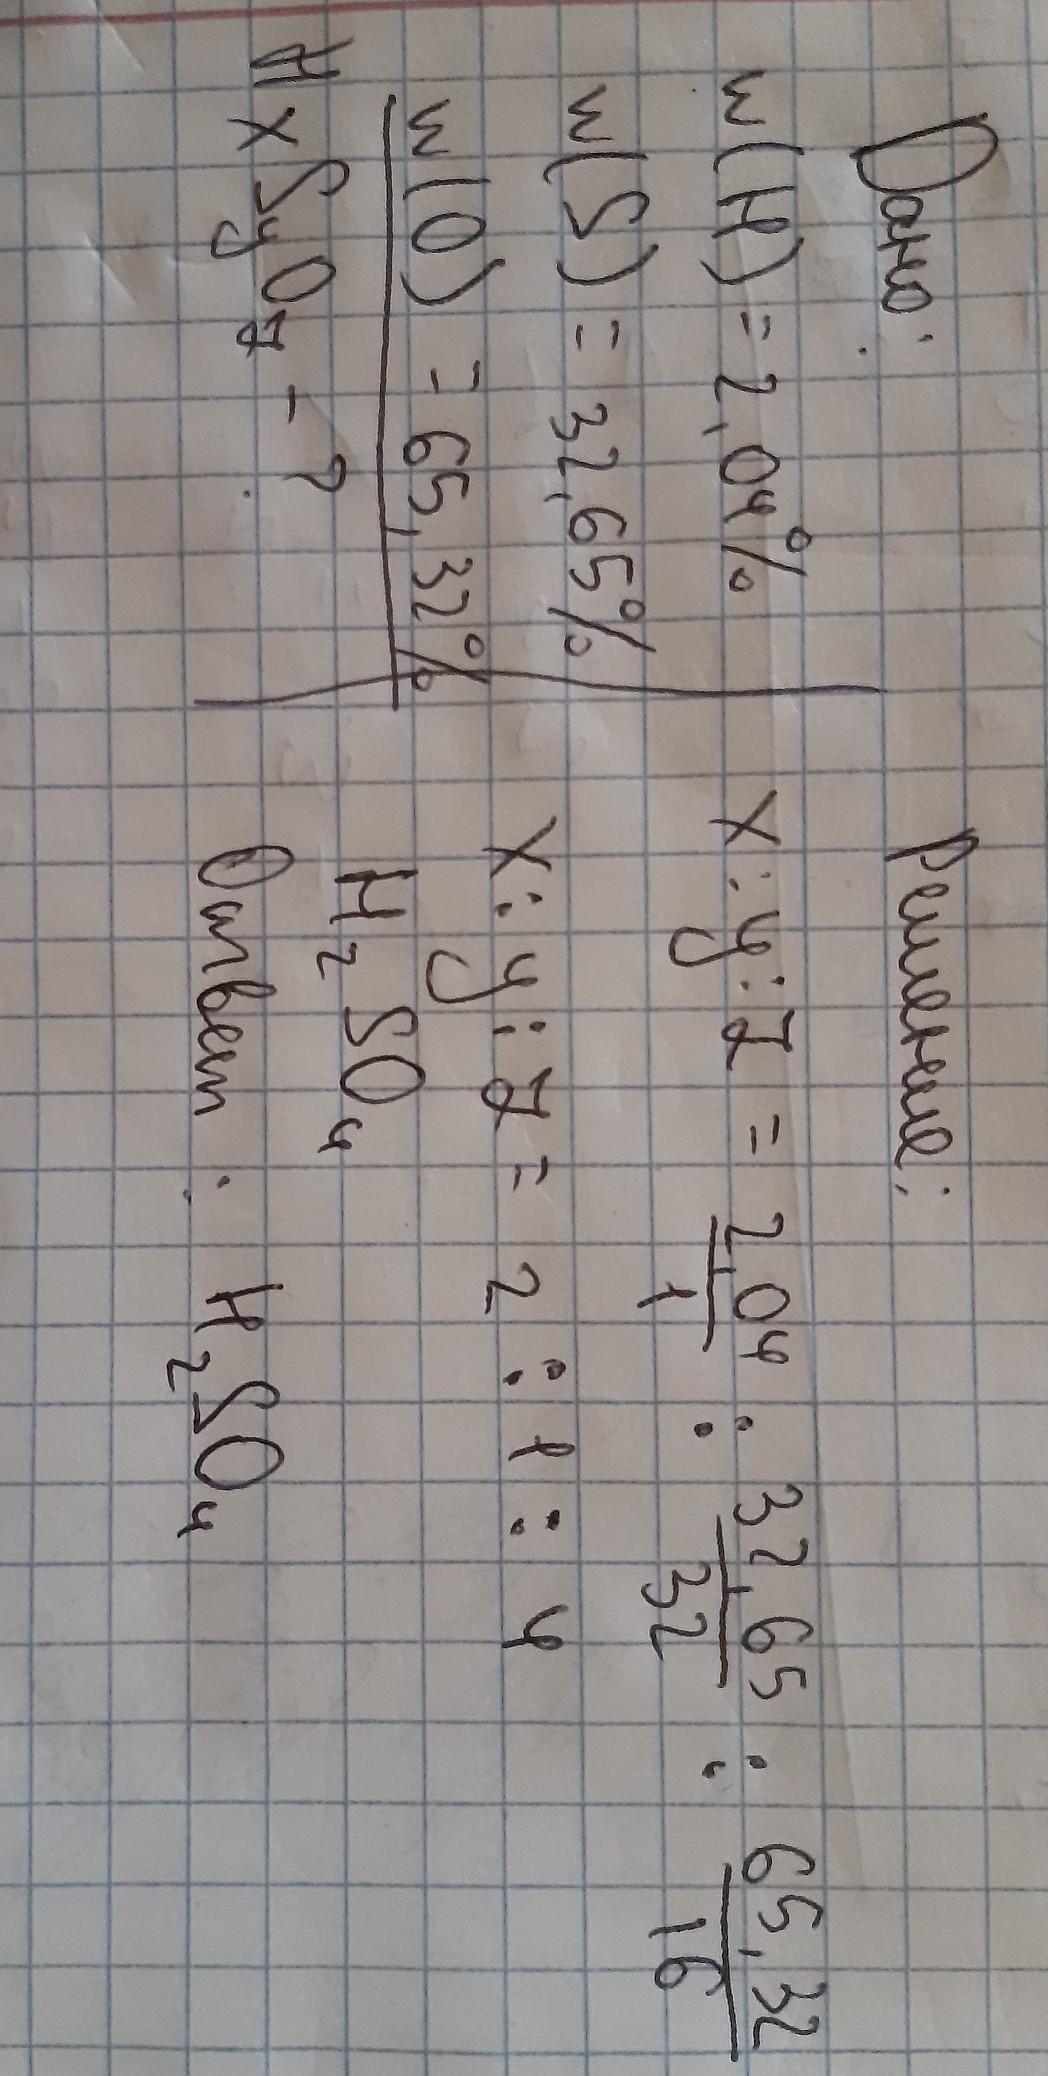 Дано:
w(H) = 2,04%
w(S) = 32,65%
w(O) = 65,32%
HxSyOz - ?
Решение:
x : y : z = 2,04/1 : 32,65/32 : 65,32/16
x : y : z = 2 : 1 : 4
H₂SO₄
Ответ : H₂SO₄